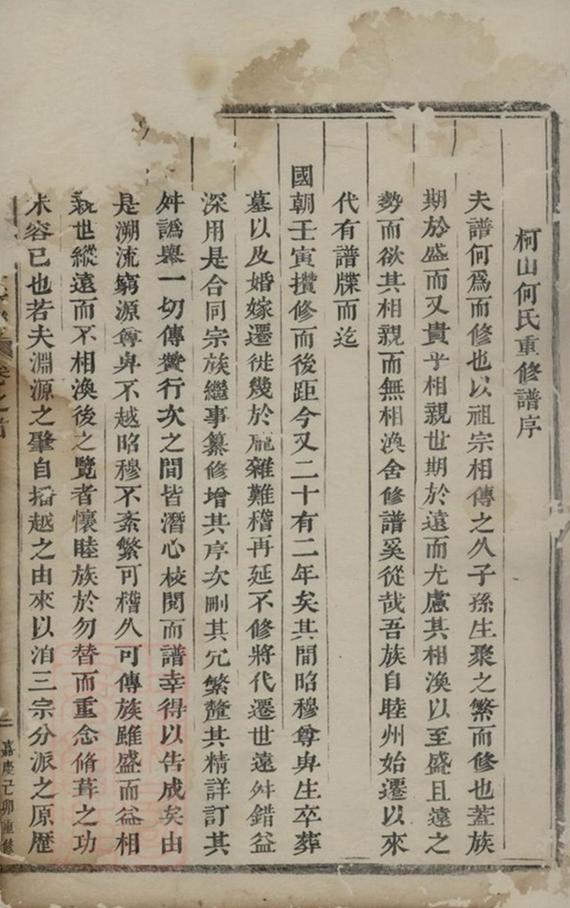 柯山何氏重修譜序
夫譜何爲而修也以祖宗相傳之久子孫生聚之繁而修也蓋族
期於盛而又貴乎相親世期於遠而尤慮其相渙以至盛且遠之
勢而欲其相親而無相渙舍修譜奚從哉吾族自睦州始遷以來
代有譜牒而迄
國朝壬寅攢修而後距今又二十有二年矣其間昭穆尊卑生卒葬
墓以及婚嫁遷徙幾於龐雜難稽再延不修將代遷世遠舛錯益
深用是合同宗族繼事纂修增其序次刪其冗繁釐其精詳訂其
舛譌舉一切傳贊行次之間皆潛心校閱而譜幸得以告成矣由
是溯流窮源尊卑不越昭穆不紊繁可稽久可傳族雖盛而益相
親世縱遠而不相渙後之覽者懷睦族於勿替而重念脩葺之功
未容已也若夫淵源之肇自播越之由來以洎三宗分派之原歷
卷之首
二
嘉慶己卯重修